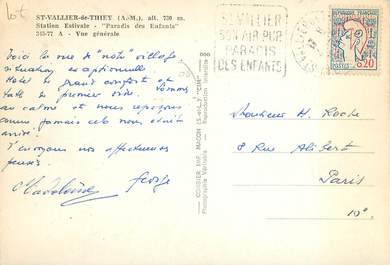 Lot
ST-VALLIER-de-THIEY (A.-M.), alt. 730 m.
Station Estivale - "Paradis des Enfants"
345-77 A - Vue générale
Voici la vue de "notre" village
situation exceptionnelle
Hotel de grand confort et
table de premier ordre. Sommes
au calme et nous reposons
comme jamais cela nous était
arrivé.
T'envoyons nos affectueuses
pensées.
Madeleine George
COMBIER IMP. MACON (S.-et-L.) "CIM"
Photographie Véritable - Reproduction interdite
ST VALLIER
SON AIR PUR
PARADIS
DES ENFANTS
REPUBLIQUE FRANÇAISE
0,20
POSTES
Monsieur H. Roche
8 Rue Alibert
Paris
10e